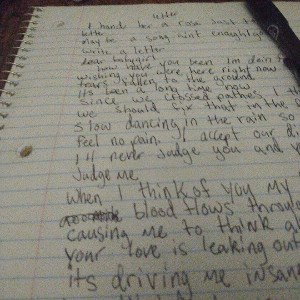 letter
I hand her a rose hand
letter
maybe a song aint enought
write a letter
dear babygirl
how have you been Im doin
wishing you were here right now
tears fallen to the ground
its been a long time now
since we crossed pathes I
we should fix that in the
slow dancing in the rain so
feel no pain. I accept our
I'll never Judge you and
Judge me.
When I think of you my
blood flows through
causing me to think
your love is leaking out
its driving me insane